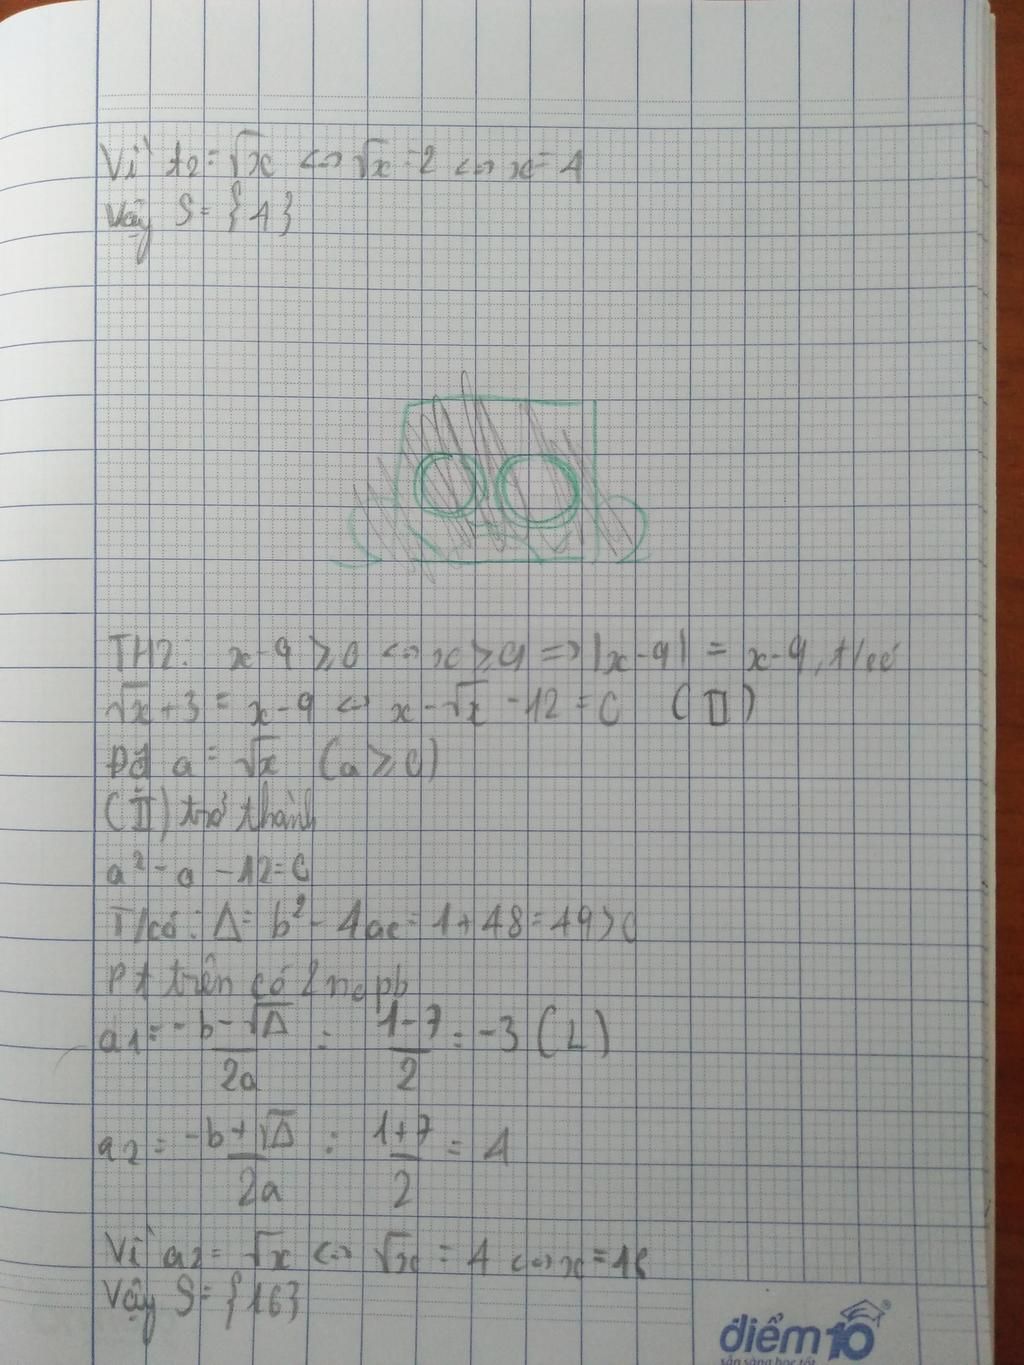 Vì t2 = √x <=> √x = 2 <=> x = 4
Vậy S = {4}
TH2: x-9 ≥ 0 <=> x ≥ 9 => |x-9| = x-9, t/có
√x + 3 = x-9 <=> x - √x - 12 = 0 (II)
Đặt a = √x (a ≥ 0)
(II) trở thành
a² - a - 12 = 0
T/có: Δ = b² - 4ac = 1 + 48 = 49 > 0
Pt trên có 2 no pb
a1 = -b-√Δ/2a = 1-7/2 = -3 (L)
a2 = -b+√Δ/2a = 1+7/2 = 4
Vì a2 = √x <=> √x = 4 <=> x = 16
Vậy S = {16}
điểm 10
sẵn sàng học tốt